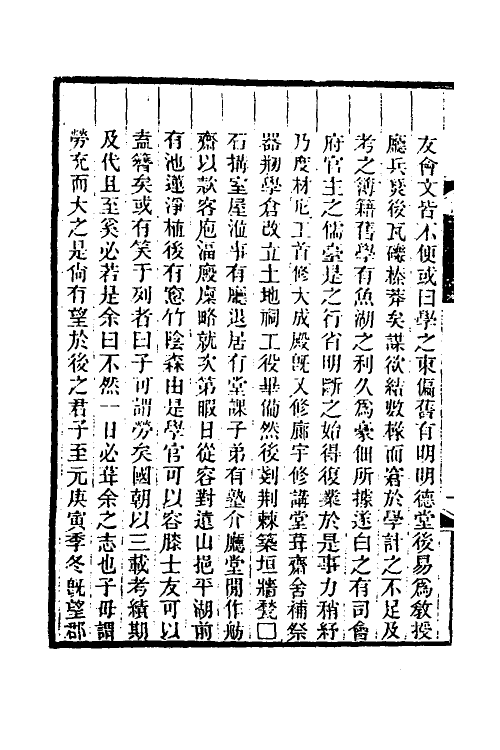 友會文皆不便或曰學之東偏舊有明明德堂後易爲敎授
廳兵燹後瓦礫榛莽矣謀欲結數椽而窘於學計之不足及
考之簿籍舊學有魚湖之利久爲豪佃所據遂白之有司會
府官主之儒臺是之行省明斷之始得復業於是事力稍紓
乃度材庀工首修大成殿旣又修廊宇修講堂葺齋舍補祭
器剏學倉改立土地祠工役畢備然後剗荆棘築垣牆甃□
石搆室屋涖事有廳退居有堂課子弟有塾介廳堂閒作舫
齋以欵客庖湢廄廩略就次第暇日從容對遠山挹平湖前
有池蓮淨植後有窓竹陰森由是學官可以容膝士友可以
盍簪矣或有笑于列者曰子可謂勞矣國朝以三載考績期
及代且至奚必若是余曰不然一日必葺余之志也子毋謂
勞充而大之是尙有望於後之君子至元庚寅季冬旣望郡